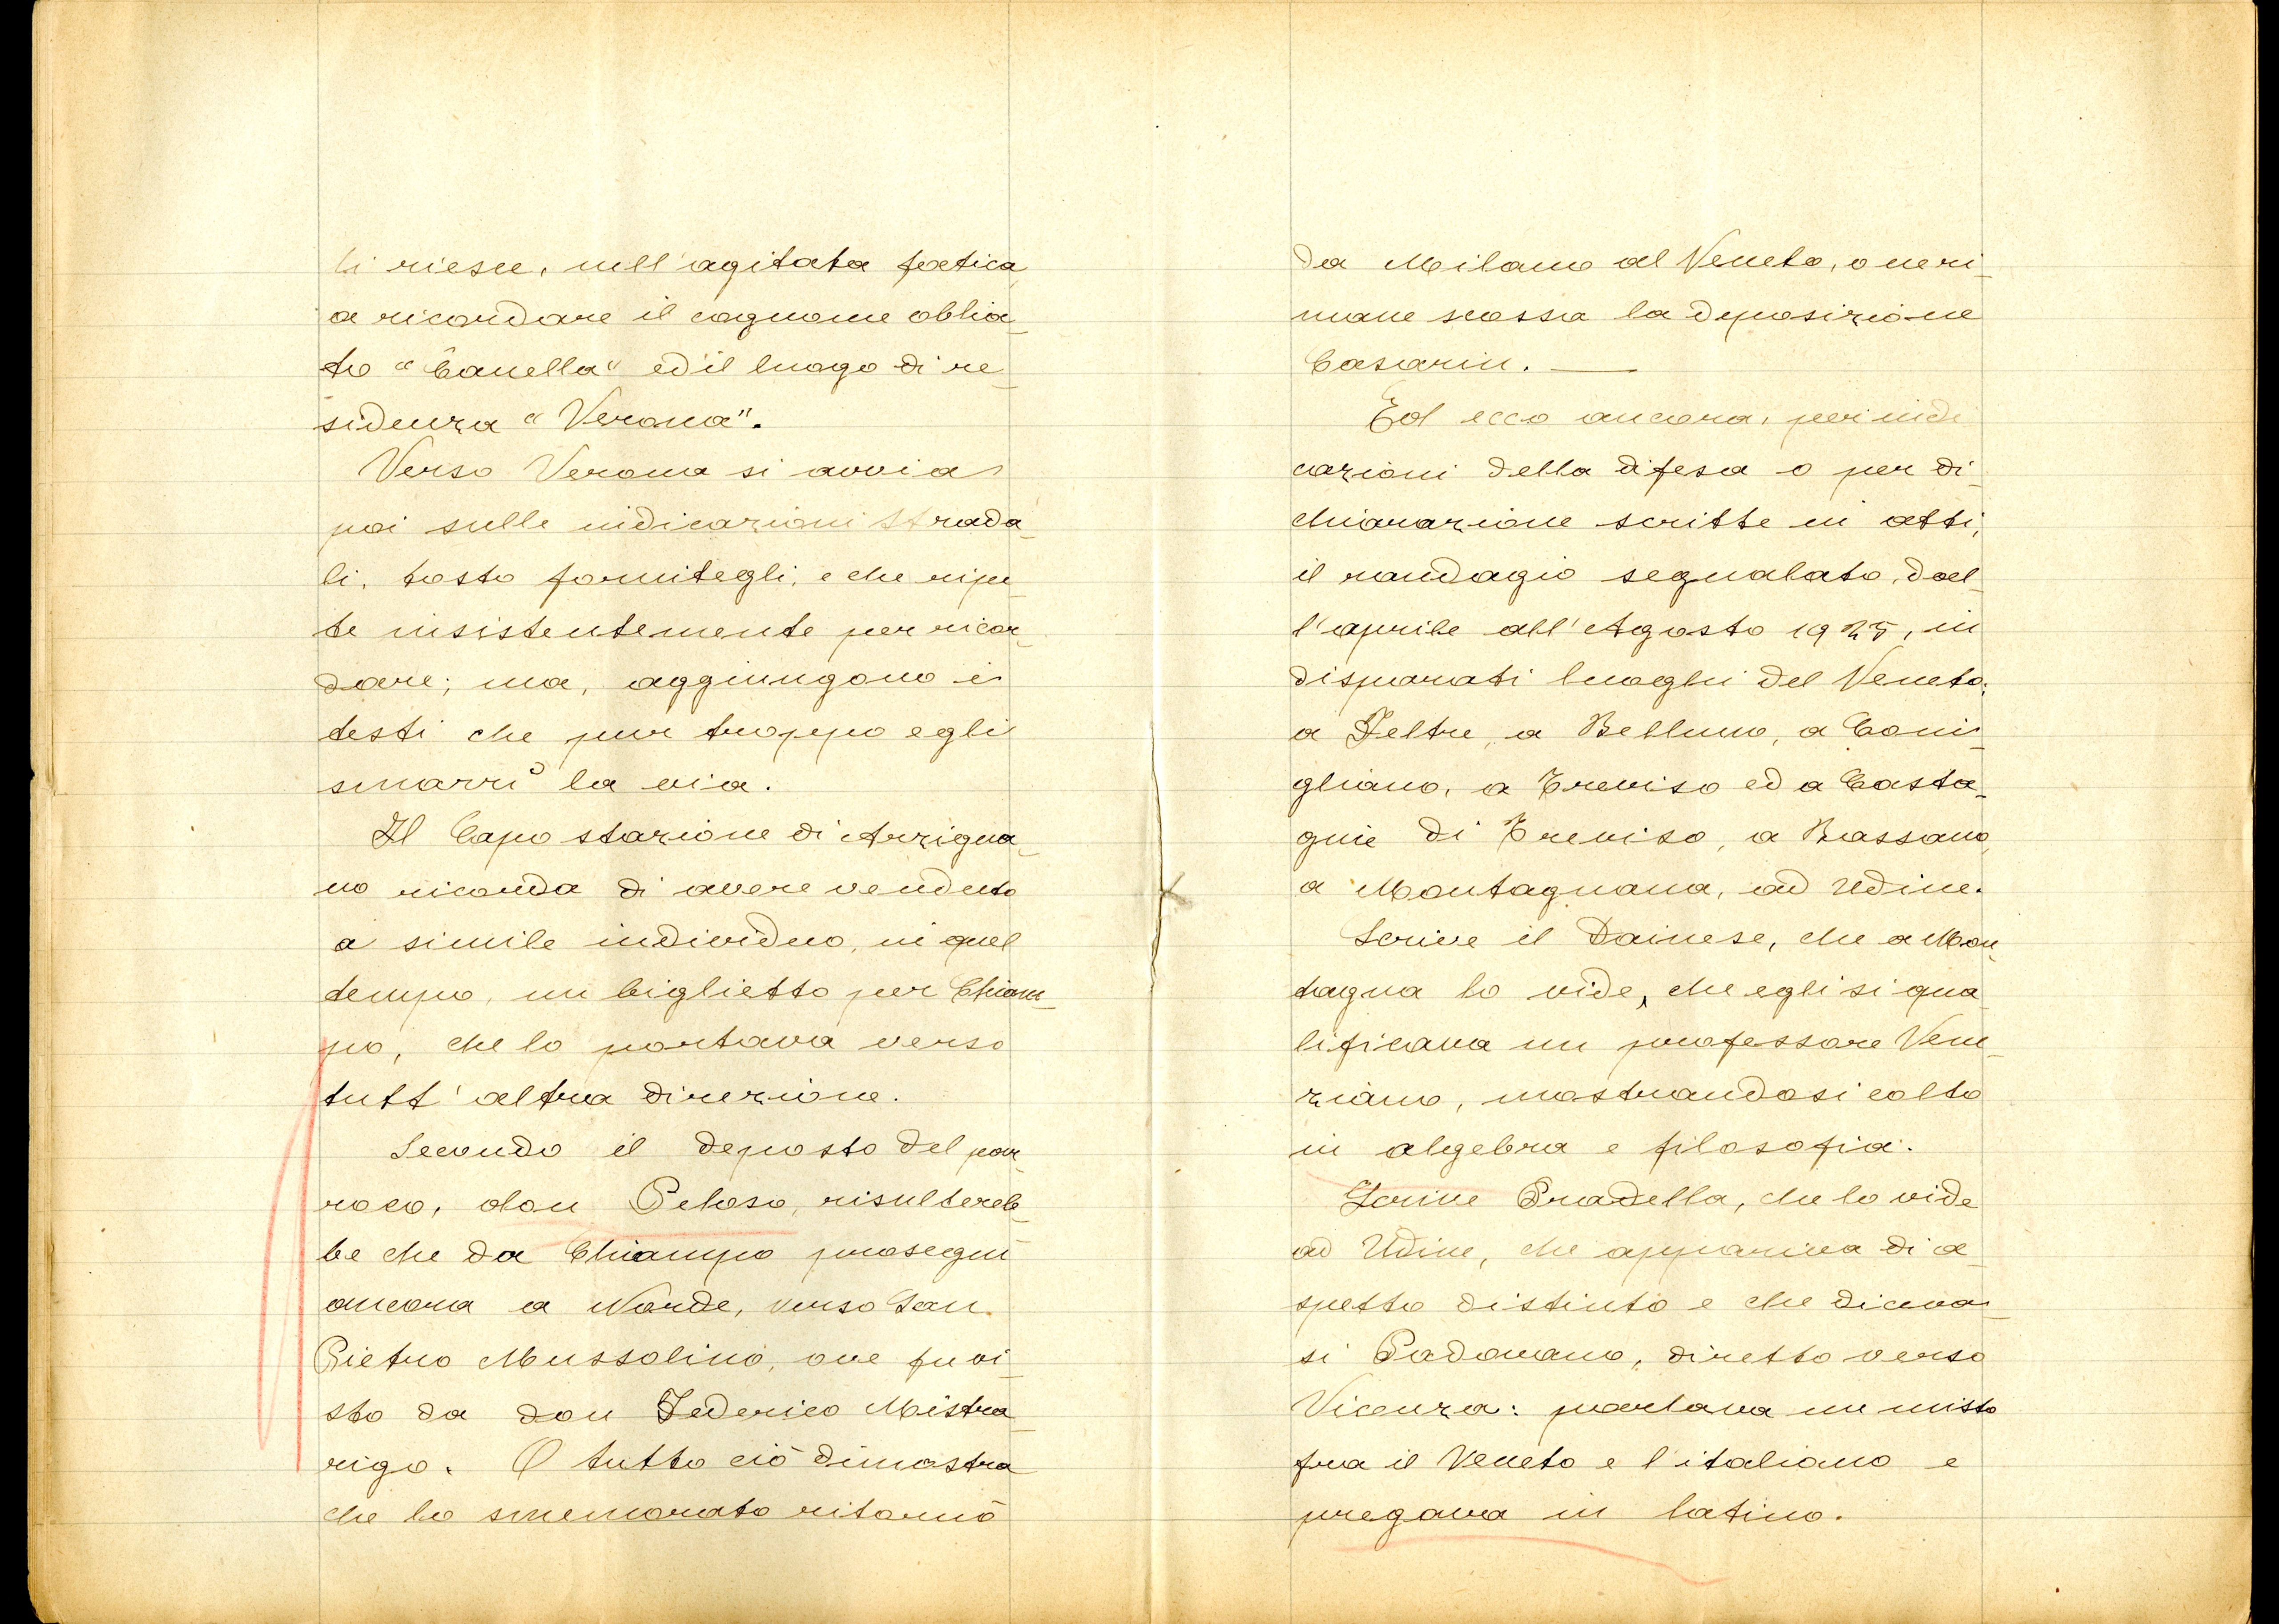 li riesce, nell'agitata fatica,
a ricordare il cognome oblia-
to "Canella" ed il luogo di re-
sidenza "Verona".
Verso Verona si avvia
poi sulle indicazioni strada-
li, tosto fornitegli, e che ripe-
te insistentemente per ricor-
dare; ma, aggiungono i
testi che pur troppo egli
smarrì la via.
Il Capo stazione di Arzigna-
no ricorda di avere venduto
a simile individuo, in quel
tempo, un biglietto per Chiam-
po, che lo portava verso
tutt'altra direzione.
Secondo il deposto del par-
roco, don Peloso, risultereb-
be che da Chiampo proseguì
ancora a Norde, verso San
Pietro Mussolino, ove fu vi-
sto da don Federico Mistro-
rigo. O tutto ciò dimostra
che lo smemorato ritornò
da Milano al Veneto, o ne ri-
mane scossa la deposizione
Casarin. —
Ed ecco ancora, per indi
cazioni della difesa o per di-
chiarazione scritte in atti,
il randagio segnalato, dal-
l'aprile all'Agosto 1925, in
disparati luoghi del Veneto:
a Feltre, a Belluno, a Coni-
gliano, a Treviso ed a Casta-
gnie di Treviso, a Bassano,
a Montagnana, ad Udine.
Scrive il Dainese, che a Mon-
tagna lo vide, che egli si qua
lificava un professore Vene-
ziano, mostrandosi colto
in algebra e filosofia.
Scrive Pradella, che lo vide
ad Udine, che appariva di a-
spetto distinto e che diceva-
si Padovano, diretto verso
Vicenza: parlava un misto
fra il Veneto e l'italiano e
pregava in latino.